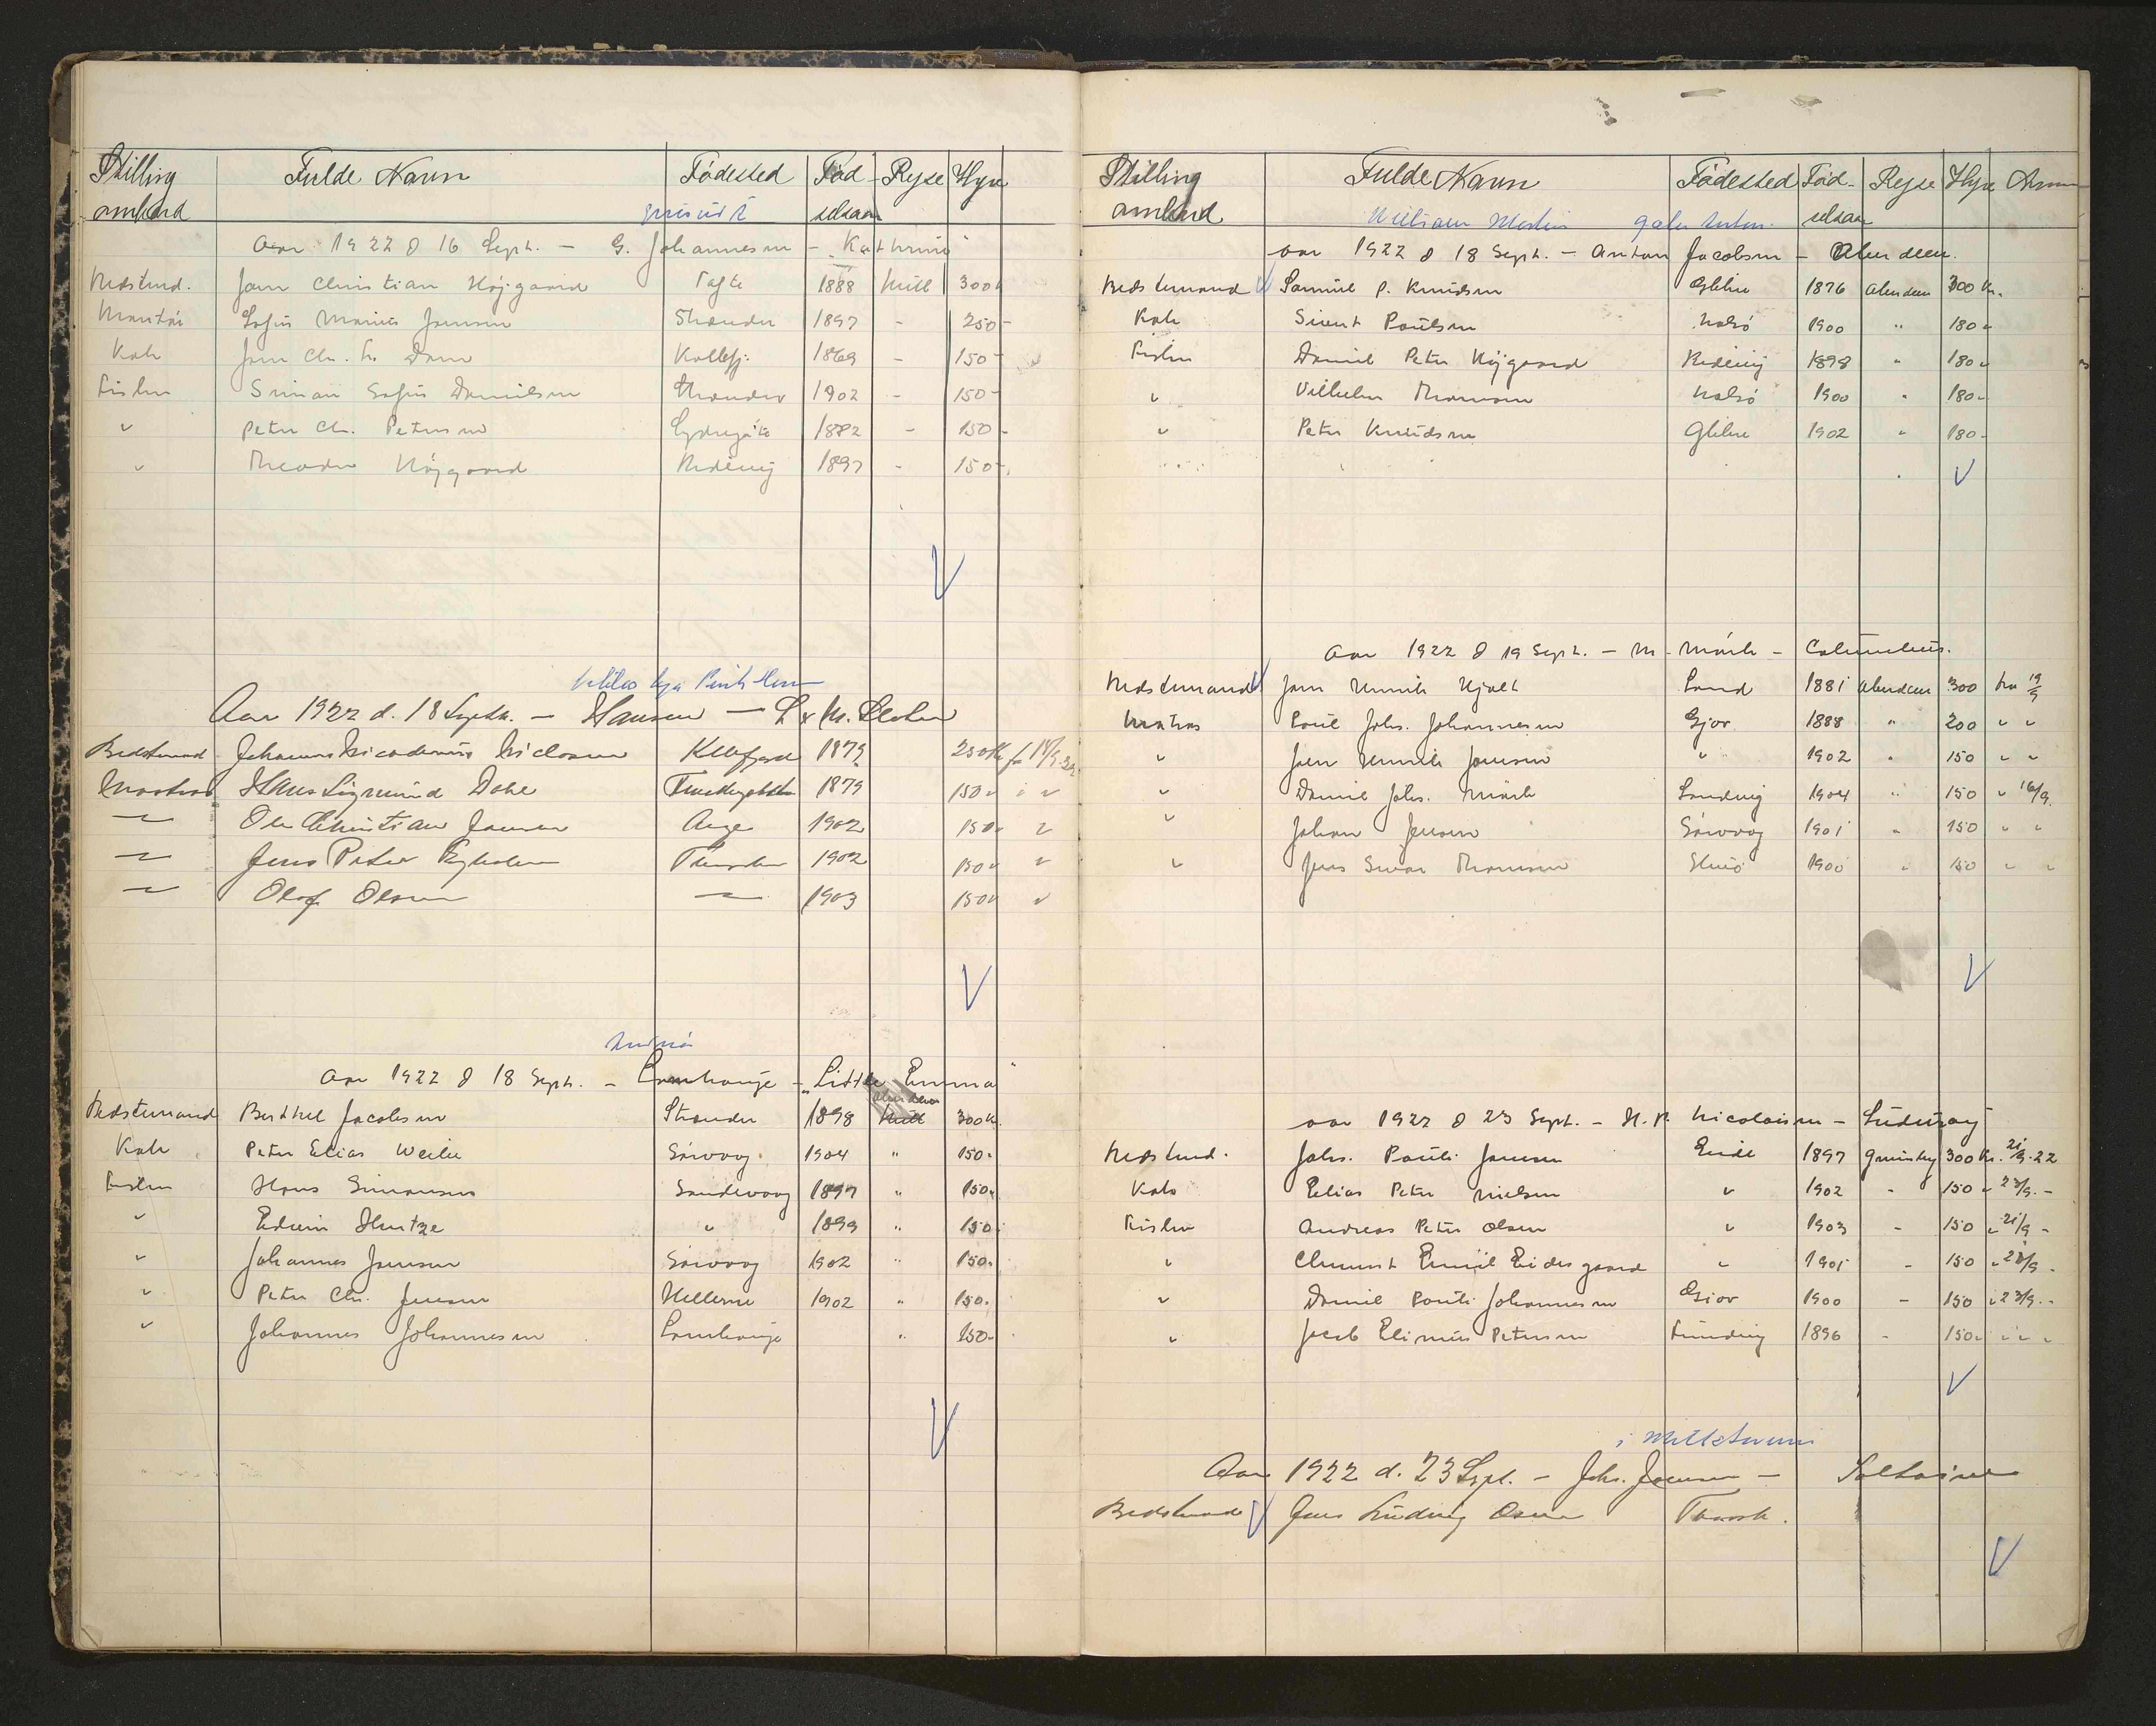 Stilling Fulde Navn Fødested Fød- Rejse Hyre
ombord selsaar
Aar 1922 d 16 Sept. - G. Johannesen - Kathrine
Bedstmd. Joen Christian Højgaard Tofte 1888 Hull 300
Sofus Marius Joensen Strænder 1897 - 250 -
Kok Joen Chr. Dam Kollefj. 1869 - 150 -
Fisker Simon Sofus Danielsen Strænder 1902 - 150 -
" Peter Chr. Petersen Sydregöte 1882 - 150 -
" Theodor Højgaard Ridevig 1897 - 150 -
Aar 1922 d. 18 Septb. - Hansen -
Bedstmand Johannes Nicodemus Niclasen 1879 250 Kr fra 18/9-22
Matros Hans Sigmund Dahl 1879 150 " " "
" Ole Christian Joensen Æge 1902 150 " "
" Jens Peter 1902 150 " "
" Olaf Olsen " 1903 150 " "
Aar 1922 d 18 Sept. - Lamhauge - "Little Emma"
Aberdeen
Bedstemand Berthel Jacobsen Strænder 1898 Hull 300 Kr.
Kok Peter Elias Weihe Sörvaag 1904 " 150 "
Fisker Hans Simonsen Sandevaag 1897 " 150 "
" Edvin Hentze " 1899 " 150 "
" Johannes Joensen Sörvaag 1902 " 150 "
" Peter Chr. Jensen Hellerne 1902 " 150 "
" Johannes Johannesen Lamhauge " 150 "
Stilling Fulde Navn Fødested Fød- Rejse Hyre Anm
ombord selsaar
William Martin
Aar 1922 d 18 Sept. - Anton Jacobsen - Aberdeen.
Bedstemand Samuel P. Knudsen Glibre 1876 Aberdeen 300 Kr.
Kok Sivert Poulsen Nolsö 1900 " 180 "
Fisker Daniel Peter Højgaard Ridevig 1898 " 180 "
" Vilhelm Thomsen Nolsö 1900 " 180 "
" Peter Knudsen Glibre 1902 " 180 -
Aar 1922 d 19 Sept. - M. Mörk - Columbus.
Bedstemand Joen Henrik Hjalt Sand 1881 Aberdeen 300 fra 19/9
Matros Poul Johs. Johannesen Gjov 1888 " 200 " "
" Joen Henrik Joensen " 1902 " 150 " "
" Daniel Johs. Mörk 1904 " 150 " 16/9.
" Johan Jensen Sörvaag 1901 " 150 " "
" Jens Sivar Thomsen 1900 " 150 " "
Aar 1922 d 23 Sept. - H. P. Nicolaisen - Suderoy
Bedstmd. Johs. Pauli Joensen Eide 1897 Grimsby 300 Kr. 21/9-22
Kok Elias Peter Nielsen " 1902 " 150 " 23/9. -
Fisker Andreas Peter Olsen " 1903 - 150 " 21/9 -
" Clement Emil Eidesgaard " 1901 - 150 " 23/9 -
" Daniel Pauli Johannesen Gjov 1900 - 150 " 23/9. -
" Jacob Elinus Petersen Funding 1896 - 150 " " " "
Aar 1922 d. 23 Sept. - Johs. Joensen -
Bedstmand Jens Ludvig Thorsh.